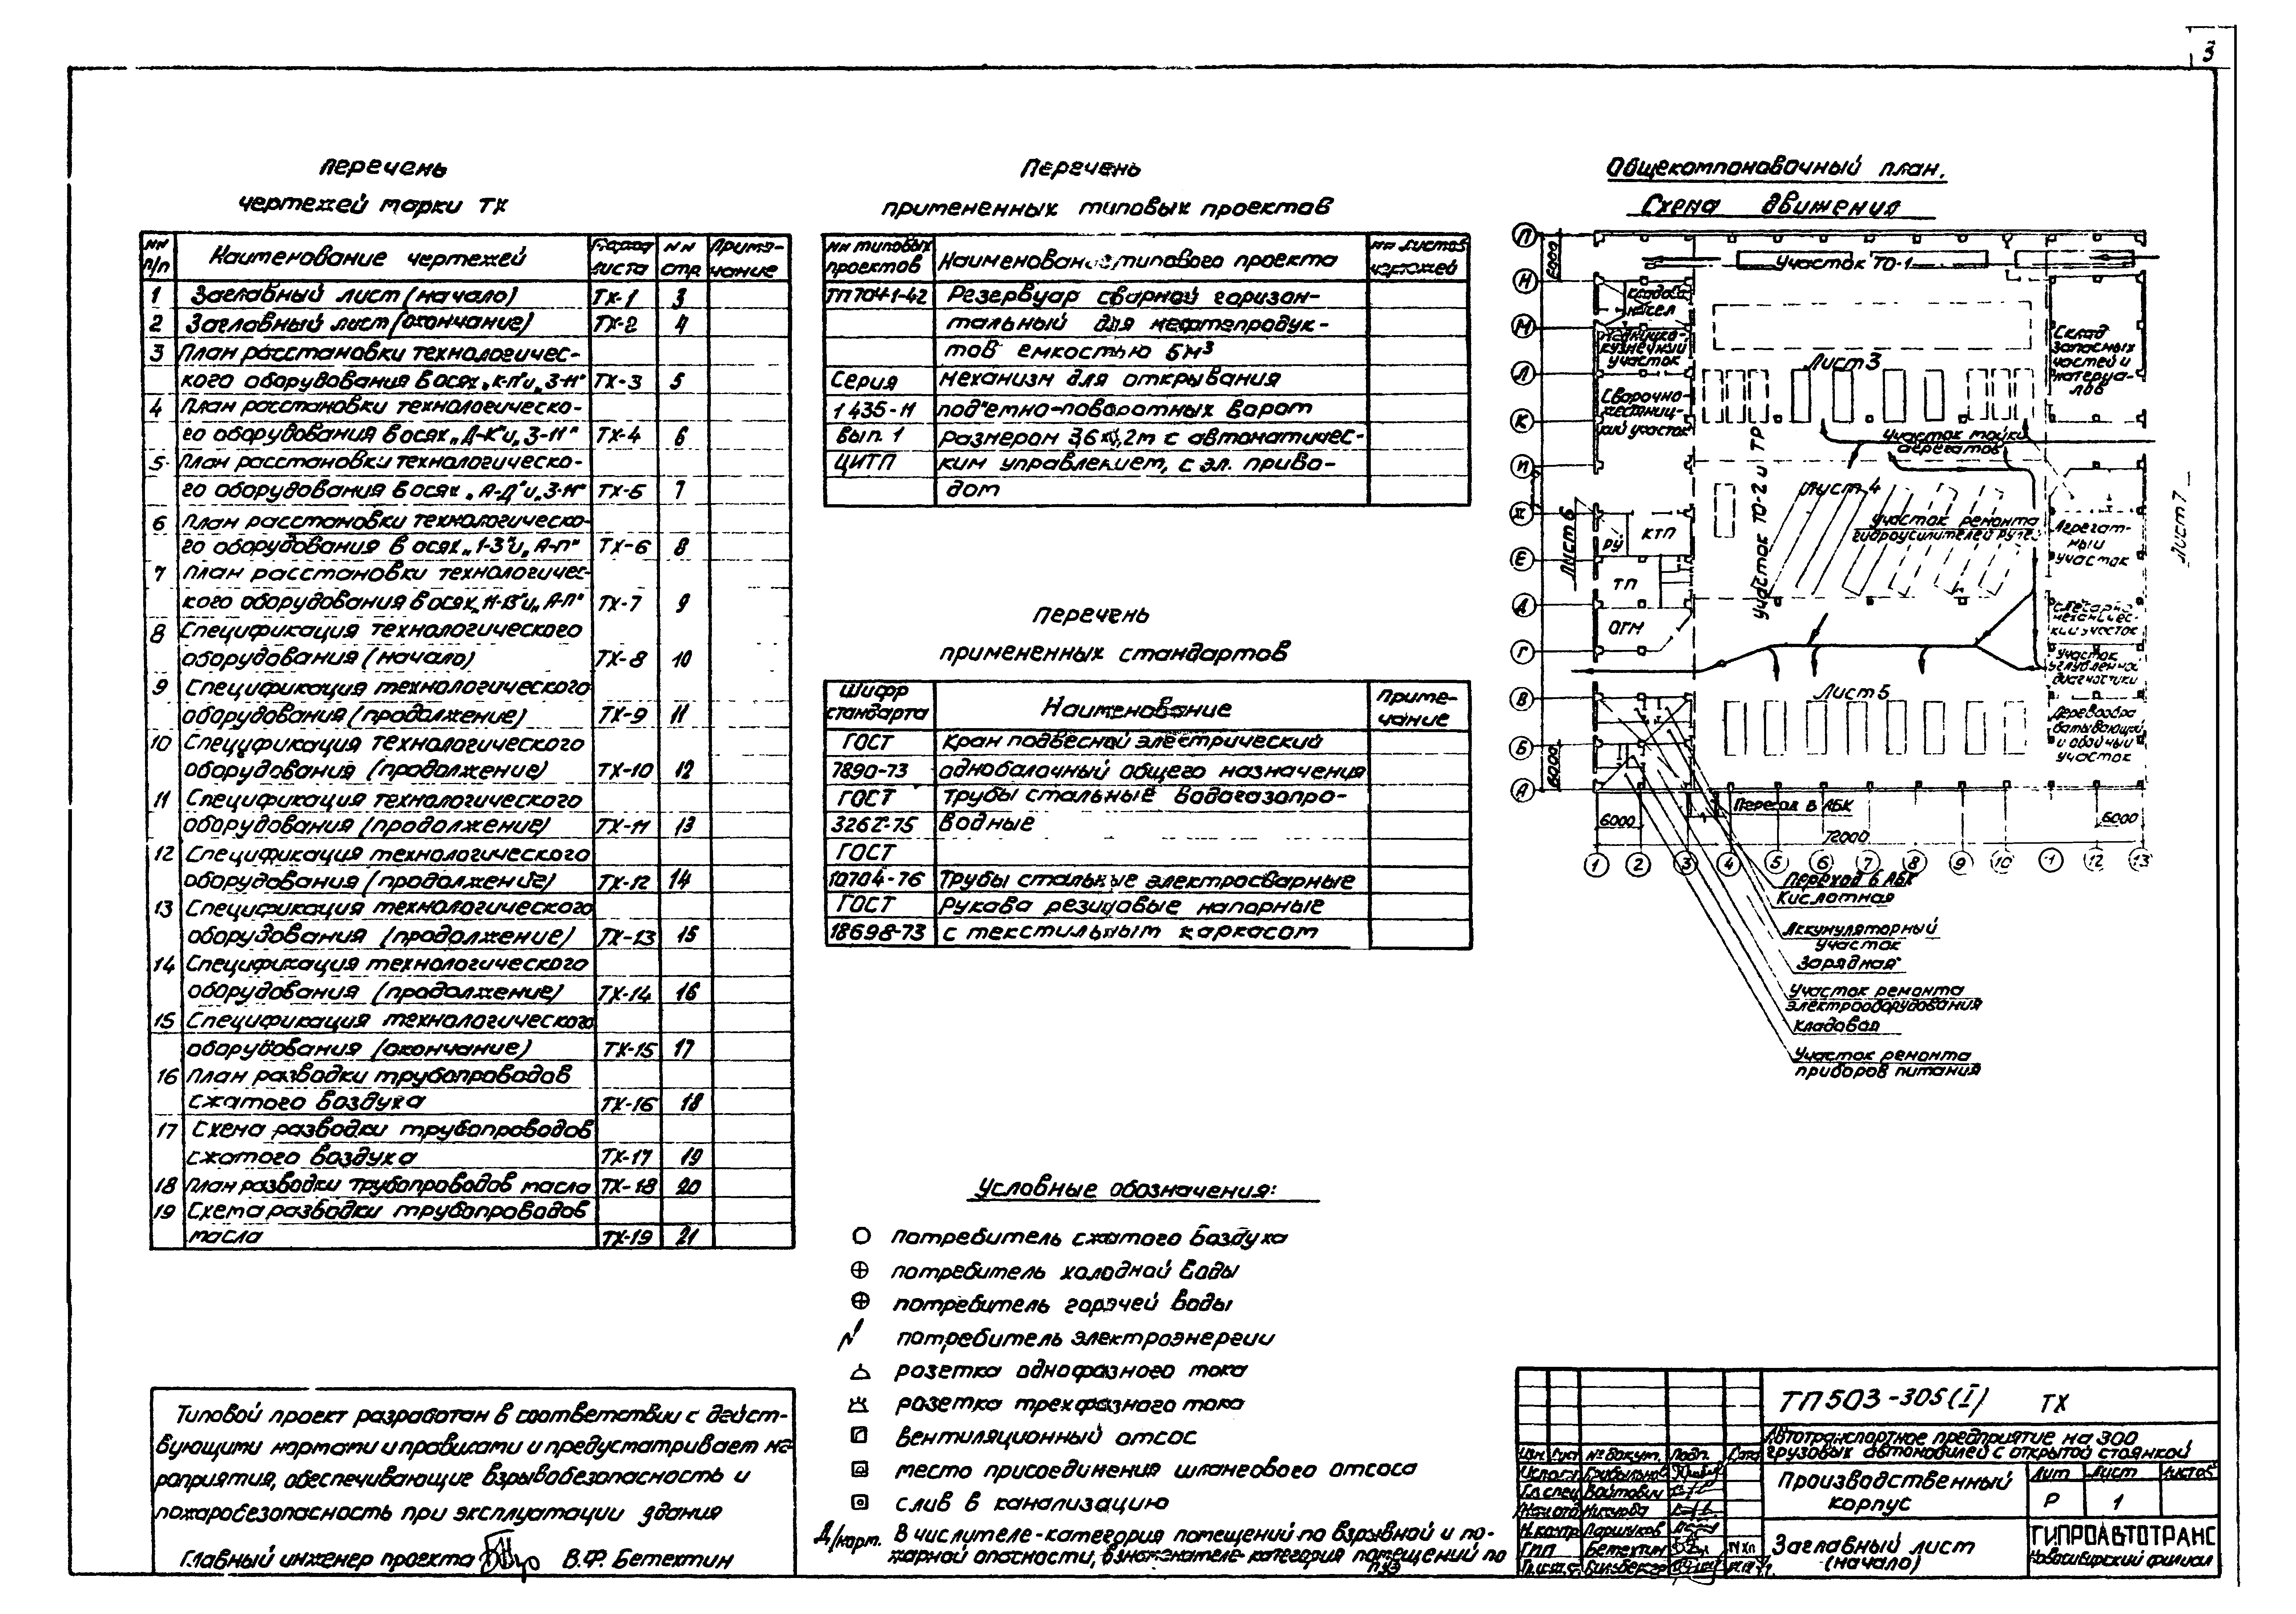 3
Перечень
чертежей марки ТХ
нн п/п
Наименование чертежей
листа
нн стр.
Приме-чание
1 Заглавный лист (начало) ТХ-1 3
2 Заглавный лист (окончание) ТХ-2 4
3 План расстановки технологичес-
кого оборудования в осях „К-П" и „3-11" ТХ-3 5
4 План расстановки технологическо-
го оборудования в осях „Д-К" и „3-11" ТХ-4 6
5 План расстановки технологическо-
го оборудования в осях „А-Д" и „3-11" ТХ-5 7
6 План расстановки технологическо-
го оборудования в осях „1-3" и „А-П" ТХ-6 8
7 План расстановки технологичес-
кого оборудования в осях „11-13" и „А-П" ТХ-7 9
8 Спецификация технологического
оборудования (начало) ТХ-8 10
9 Спецификация технологического
оборудования (продолжение) ТХ-9 11
10 Спецификация технологического
оборудования (продолжение) ТХ-10 12
11 Спецификация технологического
оборудования (продолжение) ТХ-11 13
12 Спецификация технологического
оборудования (продолжение) ТХ-12 14
13 Спецификация технологического
оборудования (продолжение) ТХ-13 15
14 Спецификация технологического
оборудования (продолжение) ТХ-14 16
15 Спецификация технологического
оборудования (окончание) ТХ-15 17
16 План разводки трубопроводов
сжатого воздуха ТХ-16 18
17 Схема разводки трубопроводов
сжатого воздуха ТХ-17 19
18 План разводки трубопроводов масла ТХ-18 20
19 Схема разводки трубопроводов
масла ТХ-19 21
Типовой проект разработан в соответствии с дейст-
вующими нормами и правилами и предусматривает ме-
роприятия, обеспечивающие взрывобезопасность и
пожаробезопасность при эксплуатации здания
Главный инженер проекта В.Ф. Бетехтин
Перечень
примененных типовых проектов
нн типовых проектов
Наименование типового проекта
нн листов чертежей
ТП 704-1-42 Резервуар сварной горизон-
тальный для нефтепродук-
тов емкостью 5м³
Серия механизм для открывания
1 435-11 под"емно-поворотных ворот
вып. 1 размером 3,6 с автоматичес-
ЦИТП ким управлением, с эл. приво-
дом
Перечень
примененных стандартов
Шифр стандарта
Наименование
Приме-чание
ГОСТ Кран подвесной электрический
7890-73 однобалочный общего назначения
ГОСТ Трубы стальные водогазопро-
3262-75 водные
ГОСТ
10704-76 Трубы стальные электросварные
ГОСТ Рукава резиновые напорные
18698-73 с текстильным каркасом
Условные обозначения:
потребитель сжатого воздуха
потребитель холодной воды
потребитель горячей воды
потребитель электроэнергии
розетка однофазного тока
розетка трехфазного тока
вентиляционный отсос
место присоединения шлангового отсоса
слив в канализацию
Д/норм. В числителе-категория помещений по взрывной и по-
жарной опасности, в знаменателе категория помещений по
ПУЭ
Общекомпоновочный план.
Схема движения
П
Н
М
Л
К
И
Ж
Е
Д
Г
В
Б
А
6000
6000
Участок ТО-1
кузнечный
участок
Лист 3
Склад
запасных
частей и
материа-
лов
Сварочно-
жестниц-
кий участок
Участок мойки
агрегатов
Участок ТО-2 и ТР
Лист 4
Участок ремонта
Лист 6
Лист 7
РУ
КТП
ТП
ОГМ
Агрегат-
ный
участок
Слесарно-
механичес-
кий участок
Участок
углубленной
диагностики
Лист 5
Деревообра
батывающий
и обойный
участок
Переход в АБК
6000
6000
72000
1 2 3 4 5 6 7 8 9 10 11 12 13
Переход в АБК
Кислотная
Аккумуляторный
участок
Зарядная
Участок ремонта
электрооборудования
Кладовая
Участок ремонта
приборов питания
ТП 503-305 (I) ТХ
Автотранспортное предприятие на 300
грузовых автомобилей с открытой стоянкой
Изм. Лист № докум. Подп. Дата
Гл.спец Войтович
Н.контр Ларичков
ГИП Бетехтин
Производственный
корпус
Лит Лист Листов
Р 1
Заглавный лист
(начало)
ГИПРОАВТОТРАНС
Новосибирский филиал